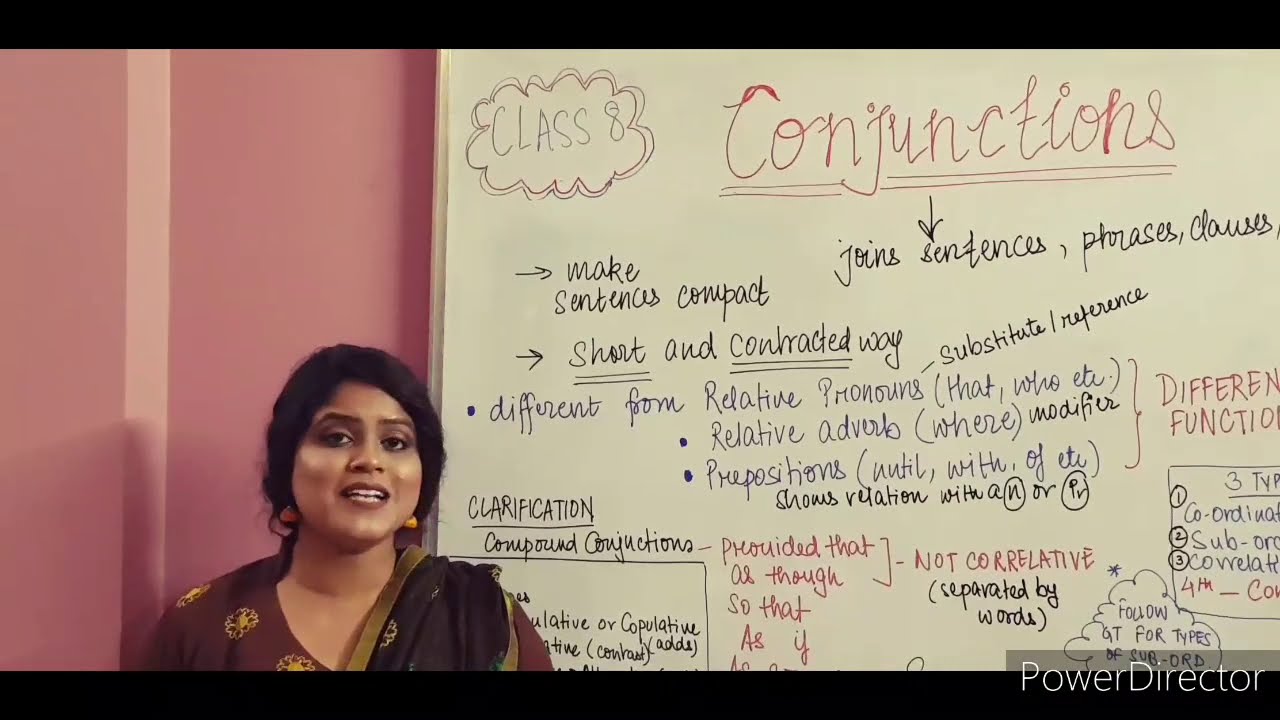 CLASS 8
Conjunctions
joins sentences, phrases, clauses,
→ make
sentences compact
→ Short and contracted way
substitute/reference
• different from Relative Pronouns (that, who etc.)
• Relative adverb (where) modifier
• Prepositions (until, with, of etc)
shows relation with a n or Pr
DIFFEREN
FUNCTIO
CLARIFICATION
Compound Conjuctions - provided that
as though
so that
As if
- NOT CORRELATIVE
(separated by
words)
ulative or Copulative
(adds)
ative (contrast)
3 TYP
① Co-ordinat
② Sub-ord
③ Correlati
4th - Co
*
FOLLOW
GT FOR TYPES
OF SUB-ORD
PowerDirector